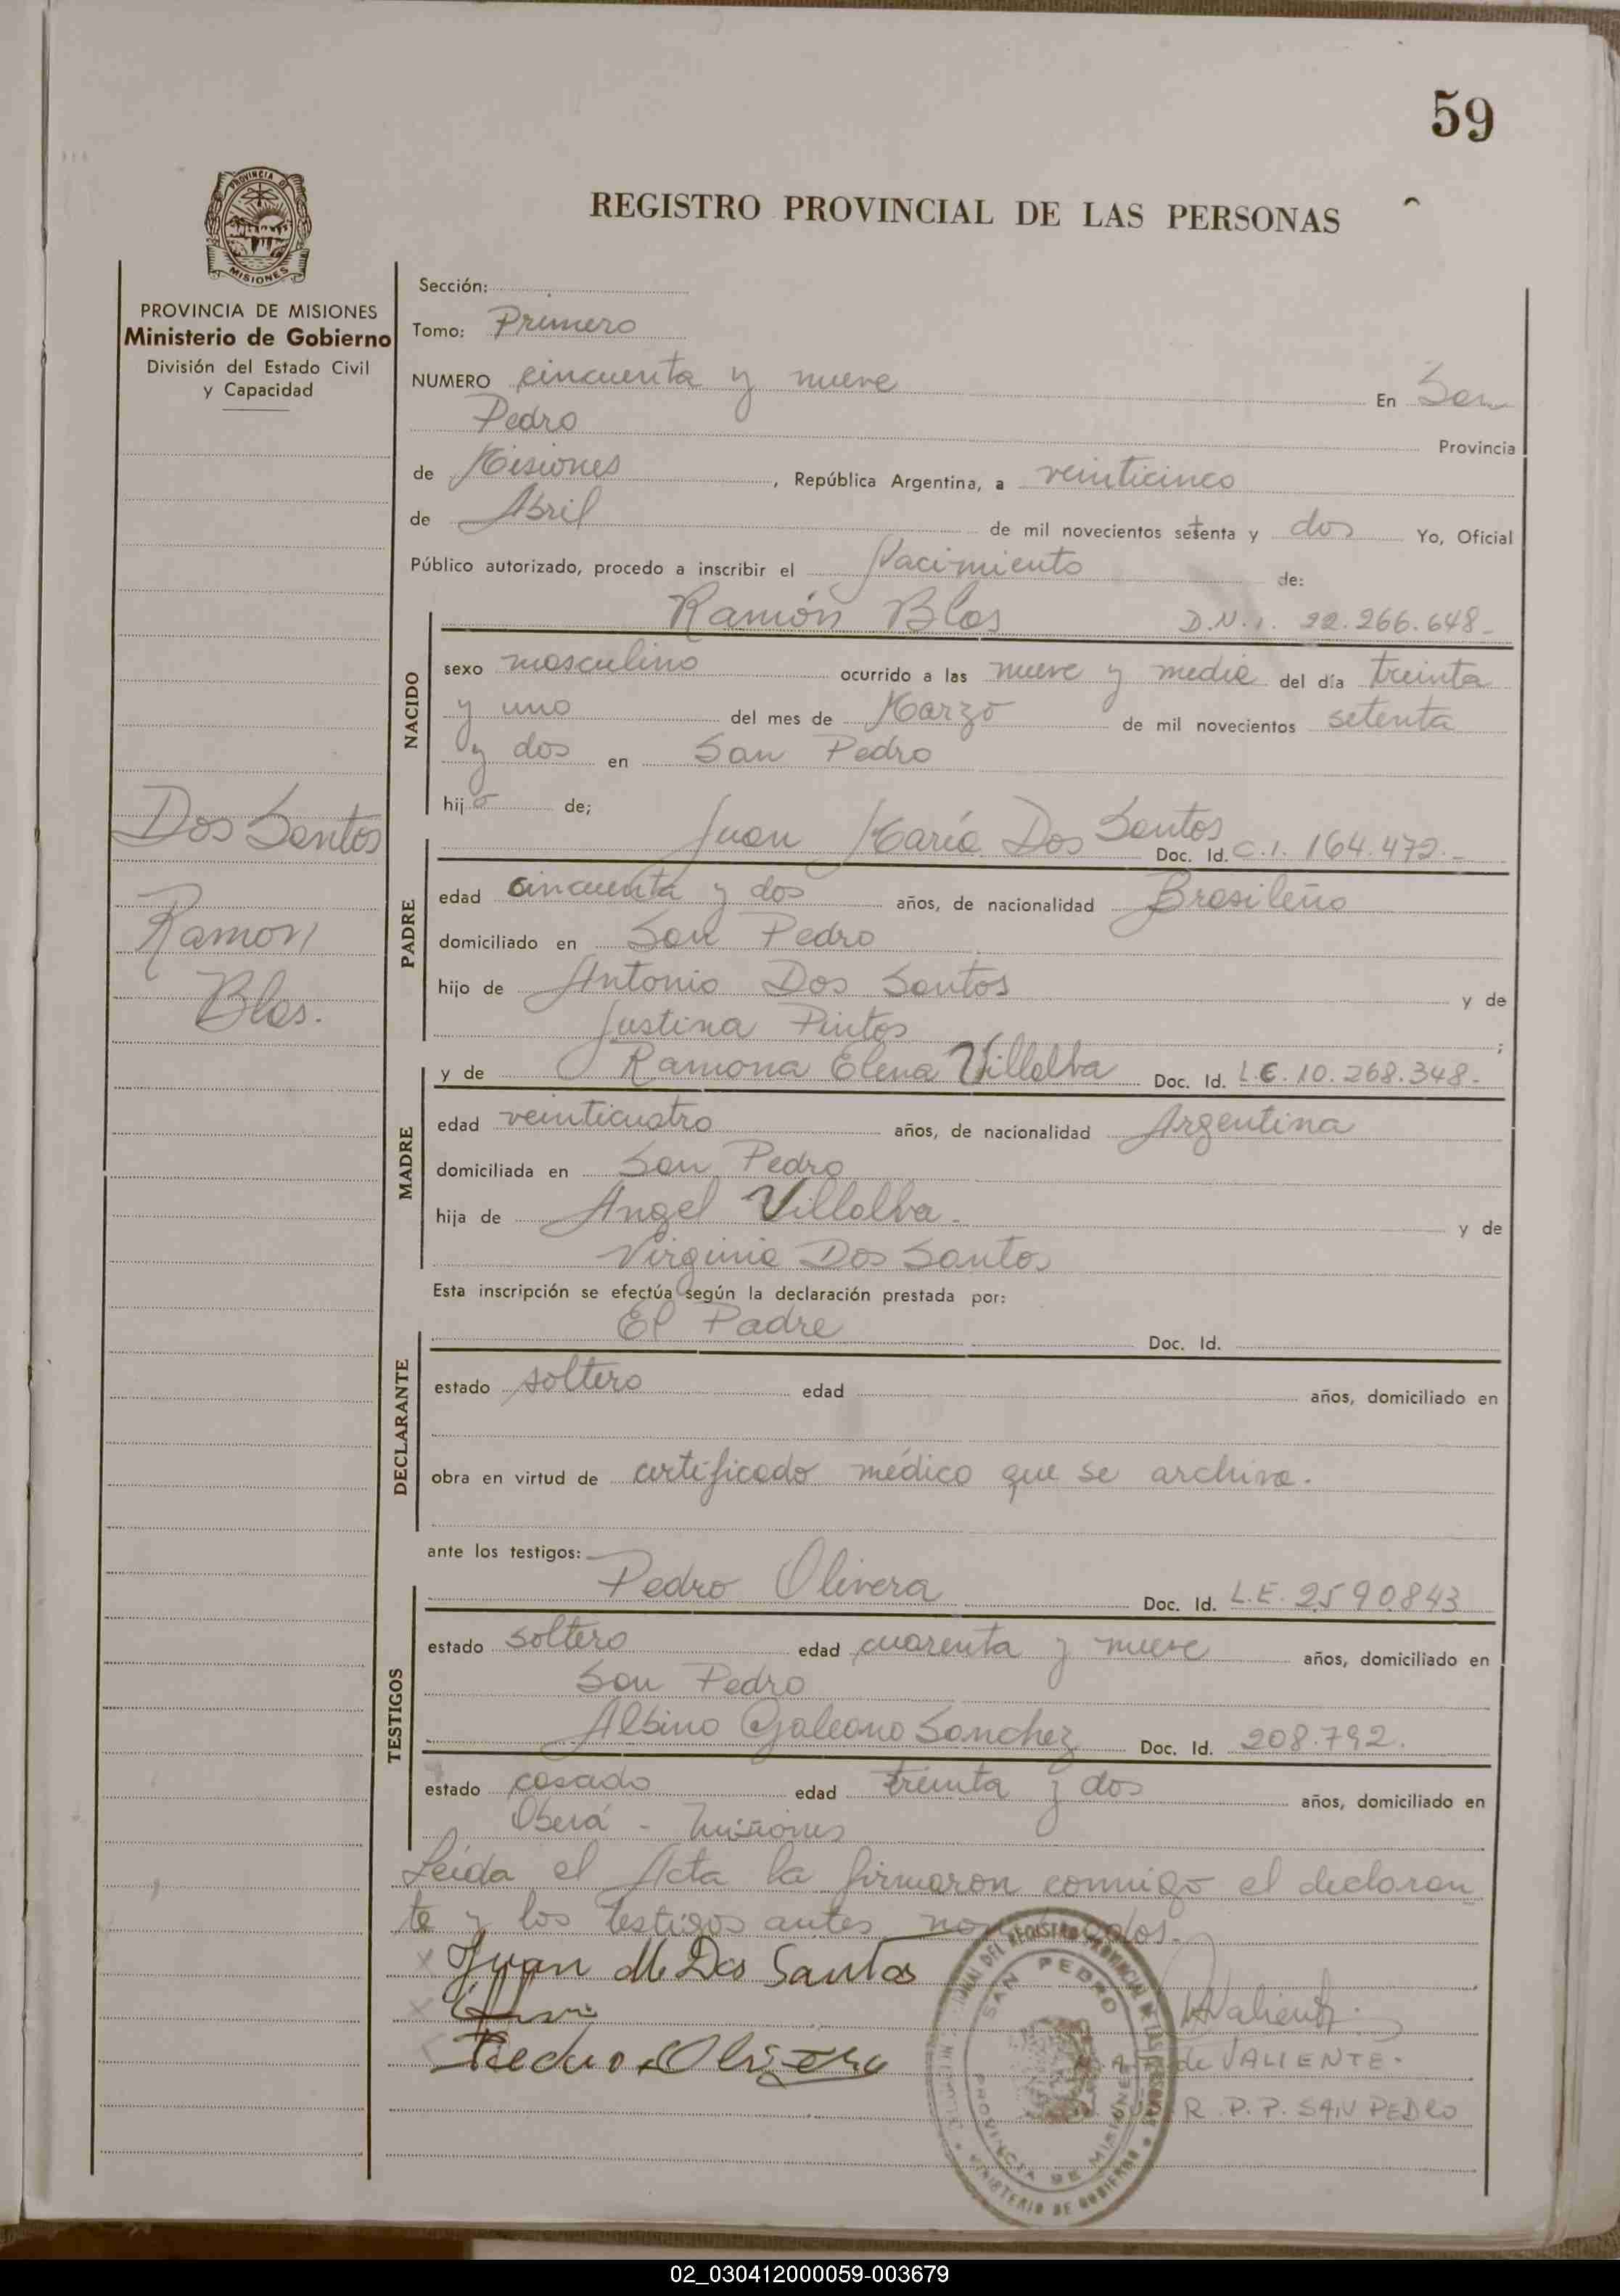 59
PROVINCIA DE
MISIONES
REGISTRO PROVINCIAL DE LAS PERSONAS
PROVINCIA DE MISIONES
Ministerio de Gobierno
División del Estado Civil
y Capacidad
Dos Santos
Ramon
Blas.
Sección:
Tomo: Primero
NUMERO cincuenta y nueve En San
Pedro Provincia
de Misiones, República Argentina, a veinticinco
de Abril de mil novecientos setenta y dos Yo, Oficial
Público autorizado, procedo a inscribir el Nacimiento de:
Ramón Blas D.N.I. 22.266.648-
NACIDO
sexo masculino ocurrido a las nueve y media del día treinta
y uno del mes de Marzo de mil novecientos setenta
y dos en San Pedro
hijo de;
Juan María Dos Santos Doc. Id. C.I. 164.472.-
PADRE
edad cincuenta y dos años, de nacionalidad Brasileño
domiciliado en San Pedro
hijo de Antonio Dos Santos y de
Justina Pintos ;
y de Ramona Elena Villalba Doc. Id. L.C. 10.268.348-
MADRE
edad veinticuatro años, de nacionalidad Argentina
domiciliada en San Pedro
hija de Angel Villalba- y de
Virginia Dos Santos
Esta inscripción se efectúa según la declaración prestada por:
El Padre Doc. Id.
DECLARANTE
estado soltero edad años, domiciliado en
obra en virtud de certificado médico que se archiva.
ante los testigos:
Pedro Olivera Doc. Id. L.E. 2590843
TESTIGOS
estado soltero edad cuarenta y nueve años, domiciliado en
San Pedro
Albino Galeano Sanchez Doc. Id. 208.792.
estado casado edad treinta y dos años, domiciliado en
Oberá - Misiones
Leída el Acta la firmaron conmigo el declaran
te y los testigos antes nombrados.
x Juan M Dos Santos
x
Pedro Olivera
Valiente
de VALIENTE.
R.P.P. SAN PEDRO
SAN PEDRO
PROVINCIA DE MISIONES
MINISTERIO DE GOBIERNO
02_030412000059-003679